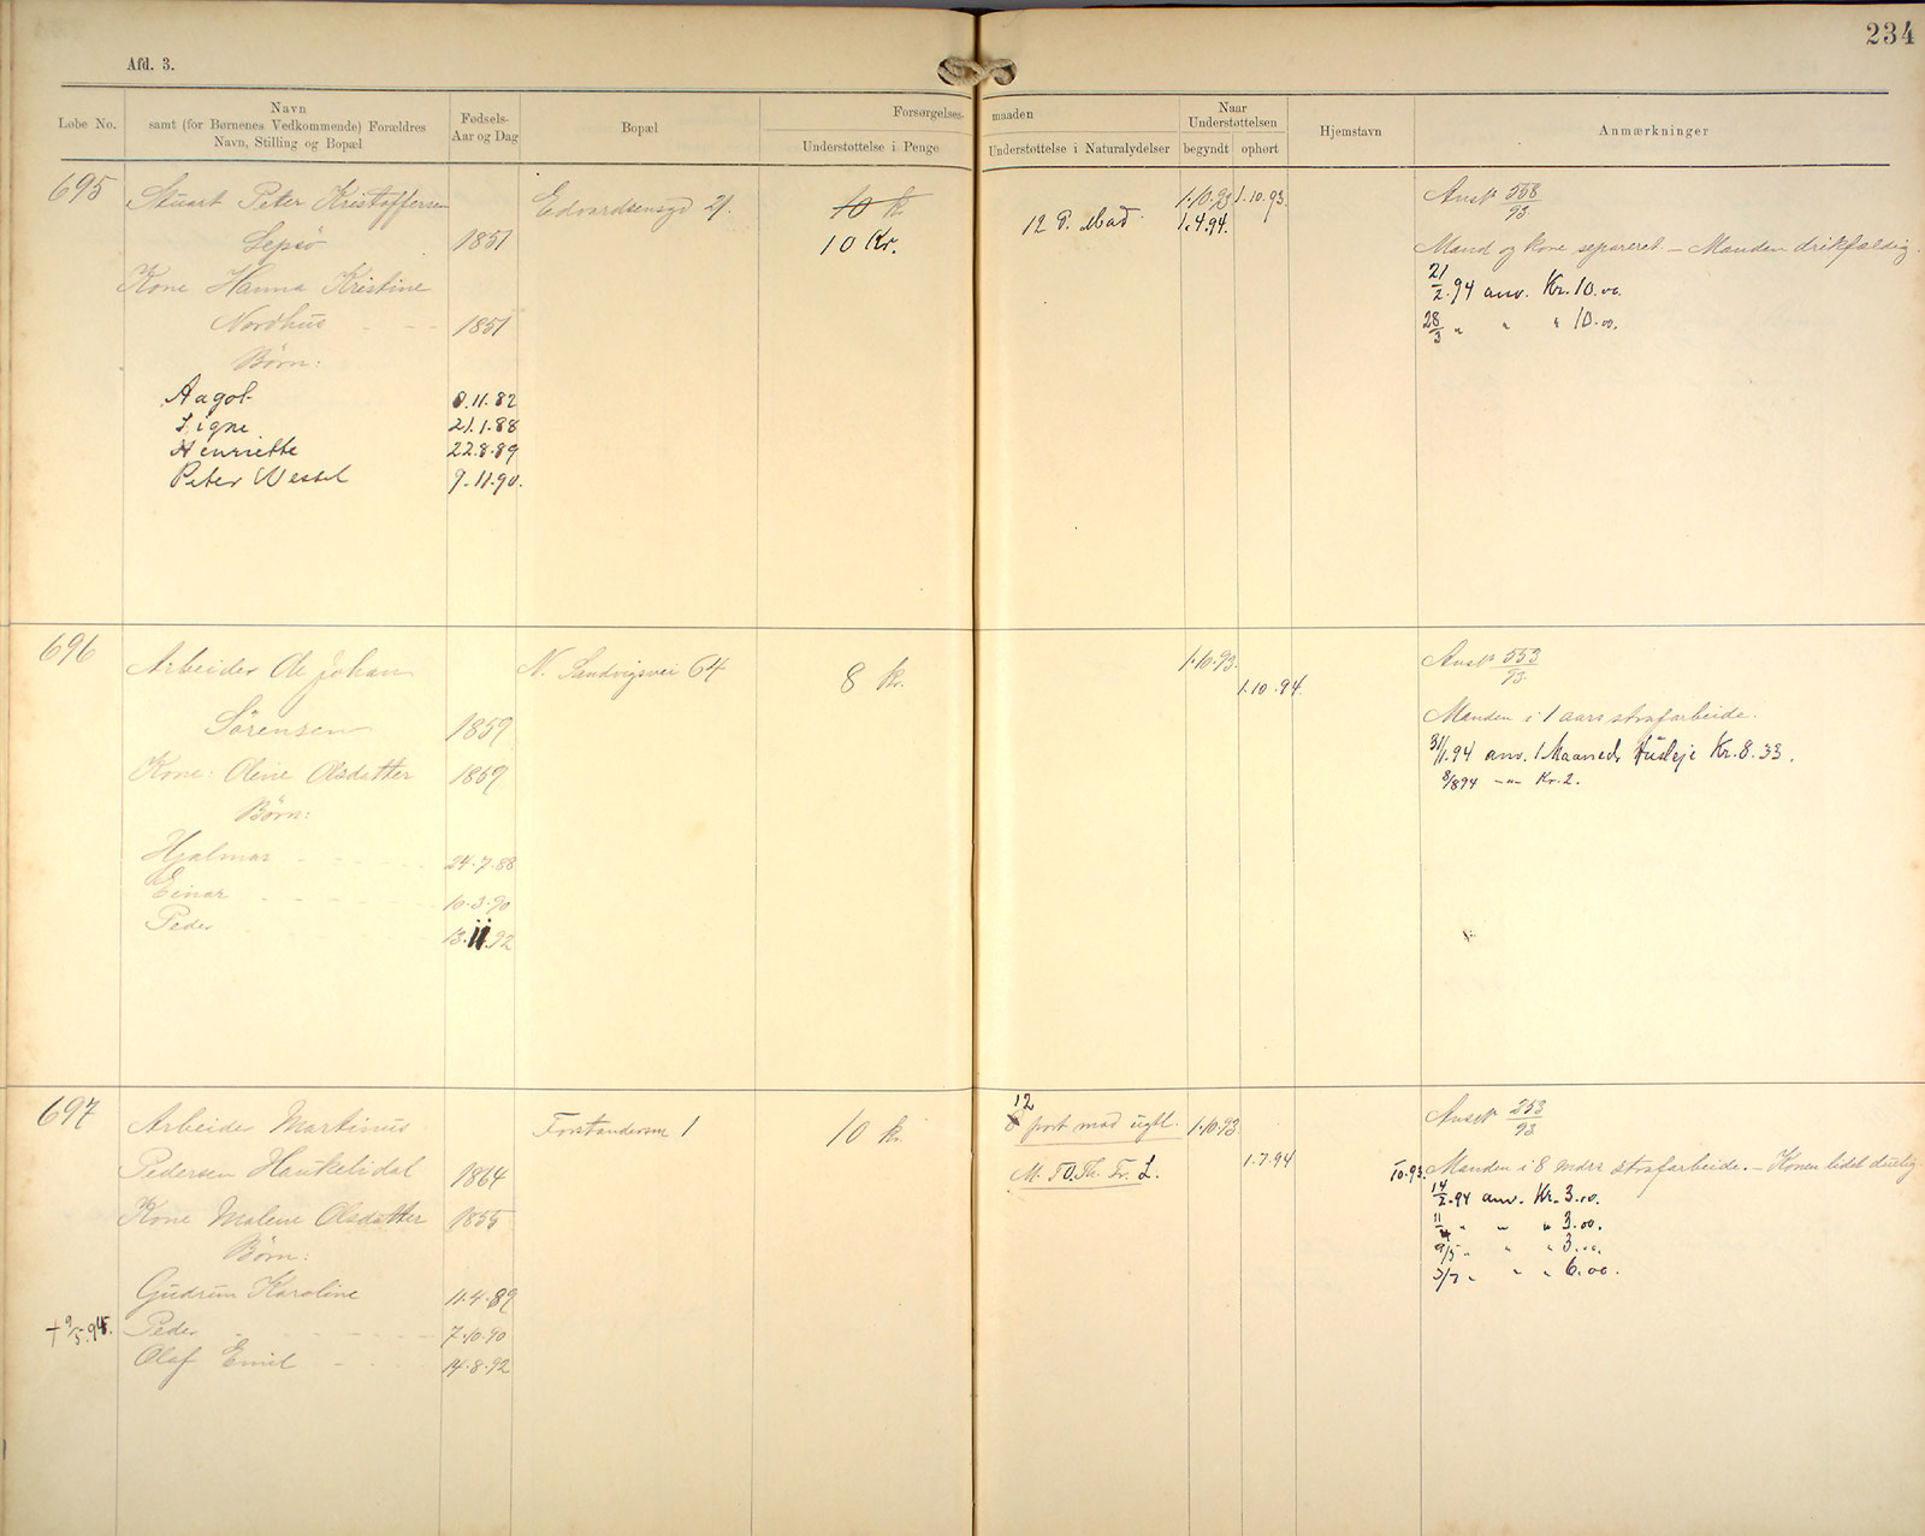 234
Afd. 3.
Løbe No.
Navn
samt (for Børnenes Vedkommende) Forældres
Navn, Stilling og Bopæl
Fødsels-
Aar og Dag
Bopæl
Forsørgelses-
maaden
Understøttelse i Penge
Understøttelse i Naturalydelser
Naar
Understøttelsen
begyndt
ophørt
Hjemstavn
Anmærkninger
695
Stuart Peter Kristoffersen
Lepsö 1851
Kone Hanna Kristine
Nordhus 1851
Börn:
Aagot 8.11.82
Signe 21.1.88
Henriette 22.8.89
Peter Wessel 9.11.90.
Edvardsensgd 21.
10 kr.
10 Kr.
12 P. Mad
1.10.93 1.10.93.
1.4.94.
Ansk 558/93.
Mand og kone separeret. — Manden drikfældig.
21/2.94 anv. Kr. 10.00.
28/3 " " " 10.00.
696
Arbeider Ole Johan
Sörensen 1859
Kone: Oline Olsdatter 1859
Börn:
Hjalmar 24.7.88
Einar 10.3.90
Peder 13.11.92
N. Sandvigsvei 64
8 kr.
1.10.93.
1.10.94.
Ansk 553/93.
Manden i 1 aars strafarbeide.
31/1.94 anv. 1 Maaneds Husleje Kr. 8.33.
8/894 -"- Kr. 2.
697
Arbeider Martinus
Pedersen Haukelidal 1864
Kone Malene Olsdatter 1855
Börn:
Gudrun Karoline 11.4.89
† 9/5.94. Peder 7.10.90
Olaf Emil 14.8.92
Forstandersm 1
10 kr.
12
8 port mad ugtl.
M. TO. Th. Fr. L.
1.10.93.
1.7.94
Ansk 253/93
10.93. Manden i 8 mdrs strafarbeide. — Konen lidet duelig
14/2.94 anv. Kr. 3.00.
11/4 " " " 3.00.
9/5 " " " 3.00.
3/7 " " " 6.00.